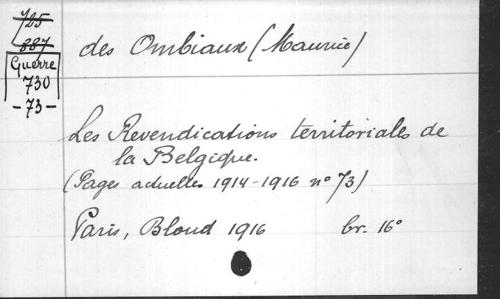 725
887
Guerre
730
- 73 -
des Ombiaux (Maurice)
Les Revendications territoriales de
la Belgique.
(Pages actuelles 1914-1916 n° 73)
Paris, Bloud 1916 br. 16°